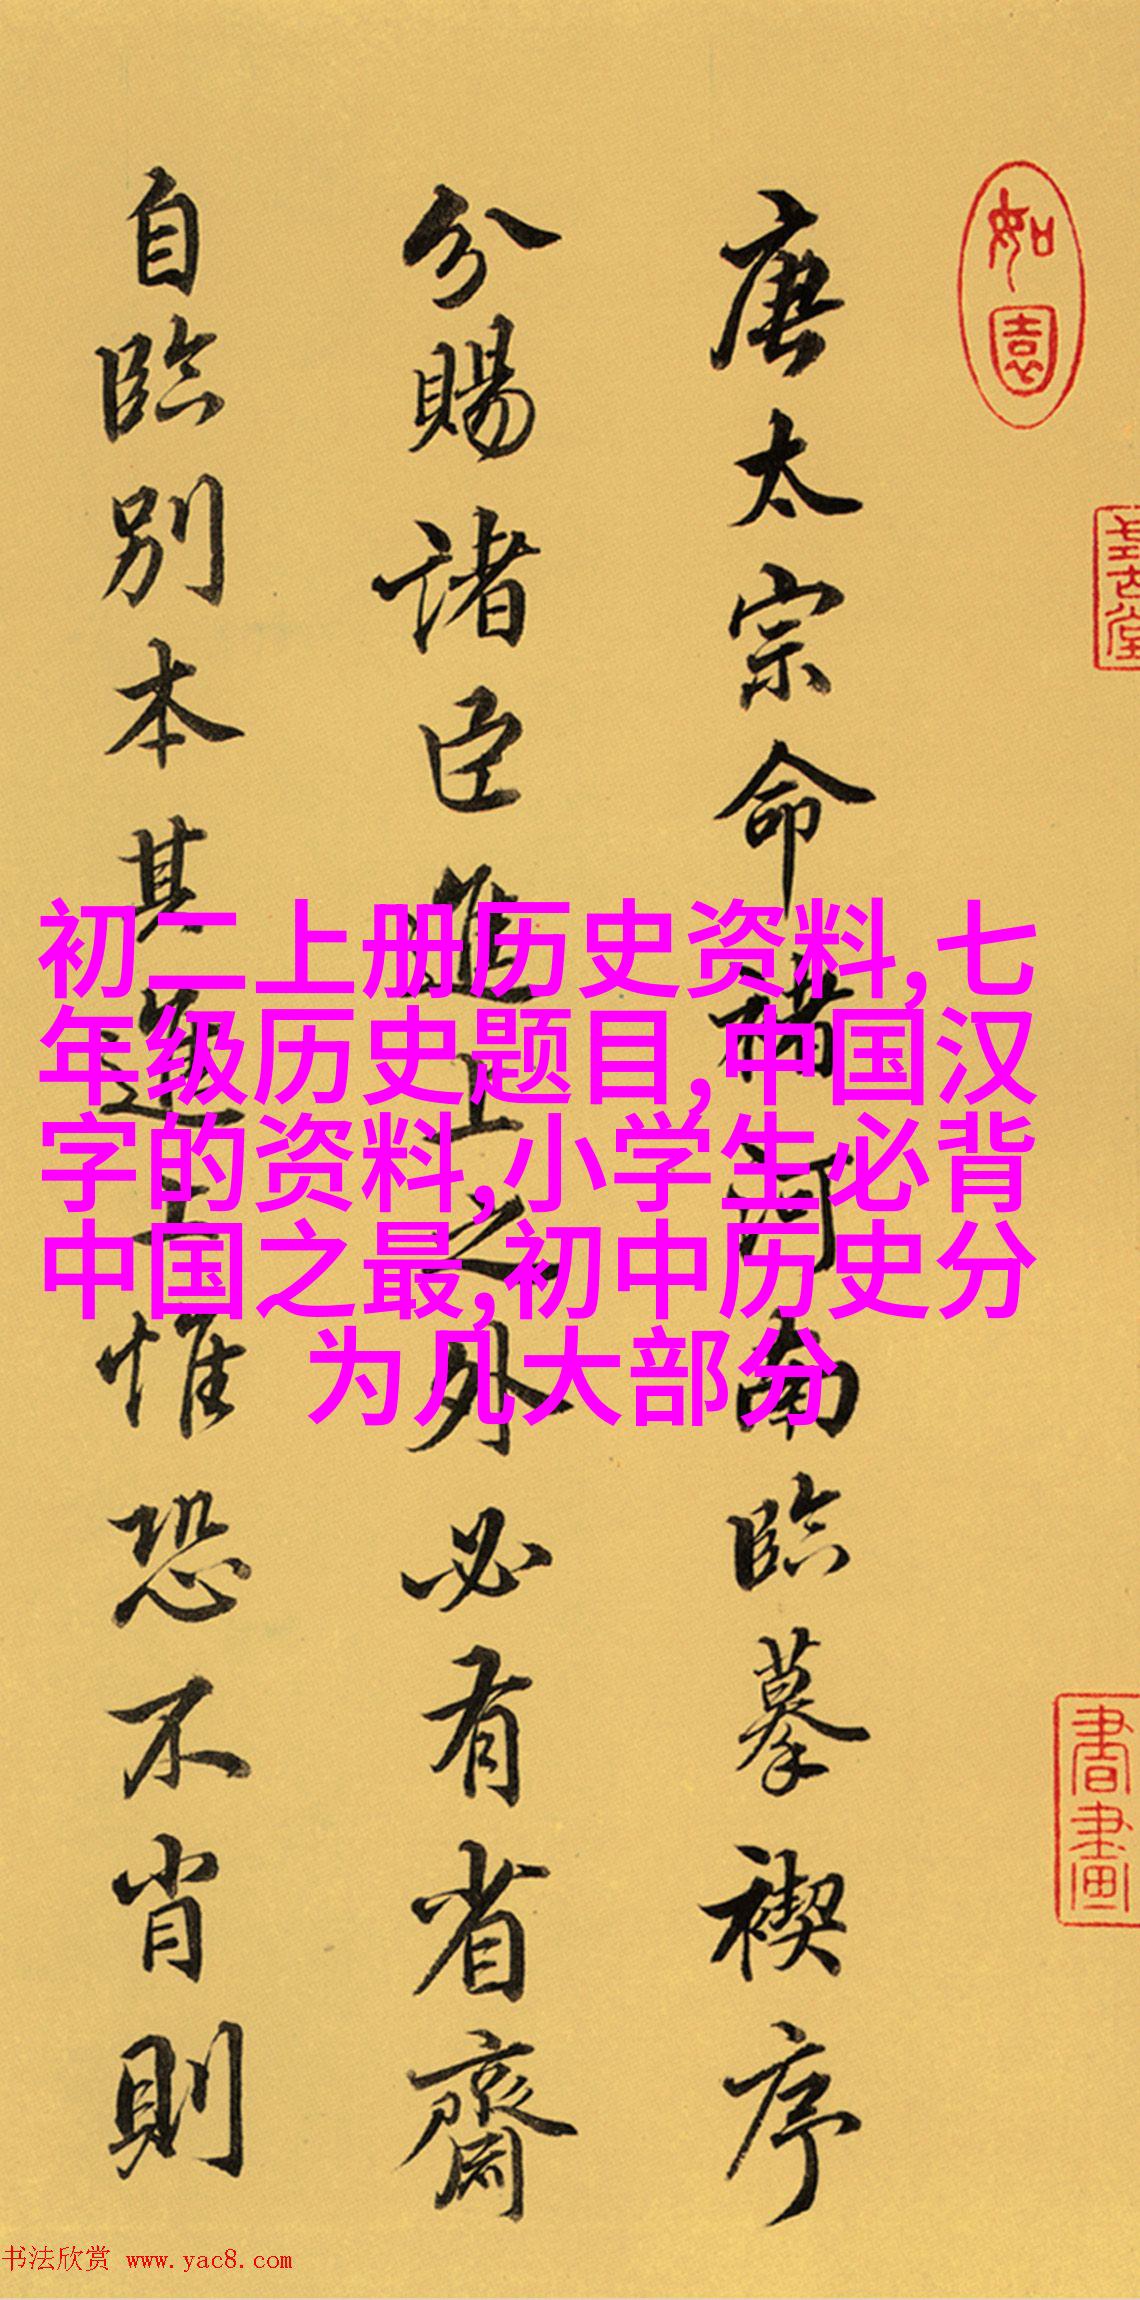 如園
書畫
唐太宗命褚河南臨摹禊序
分賜諸臣進上之外必有省齋
自臨別本其進上惟恐不肖則
初二上册历史资料,七
年级历史题目,中国汉
字的资料,小学生必背
中国之最,初中历史分
为几大部分
书法欣赏 www.yac8.com